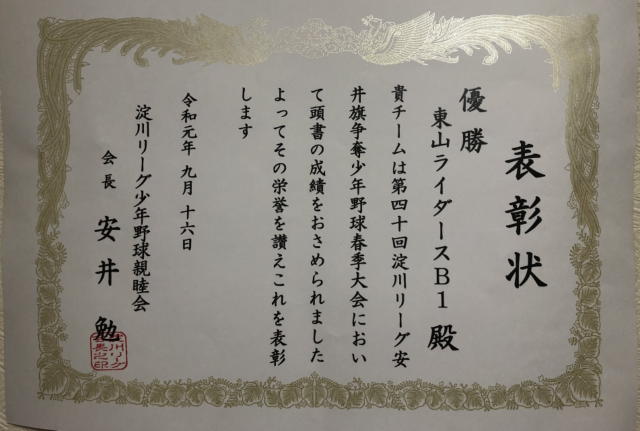 表彰状
優勝
東山ライダースB1 殿
貴チームは第四十回淀川リーグ安
井旗争奪少年野球春季大会におい
て頭書の成績をおさめられました
よってその栄誉を讃えこれを表彰
します
令和元年 九月 十六日
淀川リーグ少年野球親睦会
会長 安井 勉